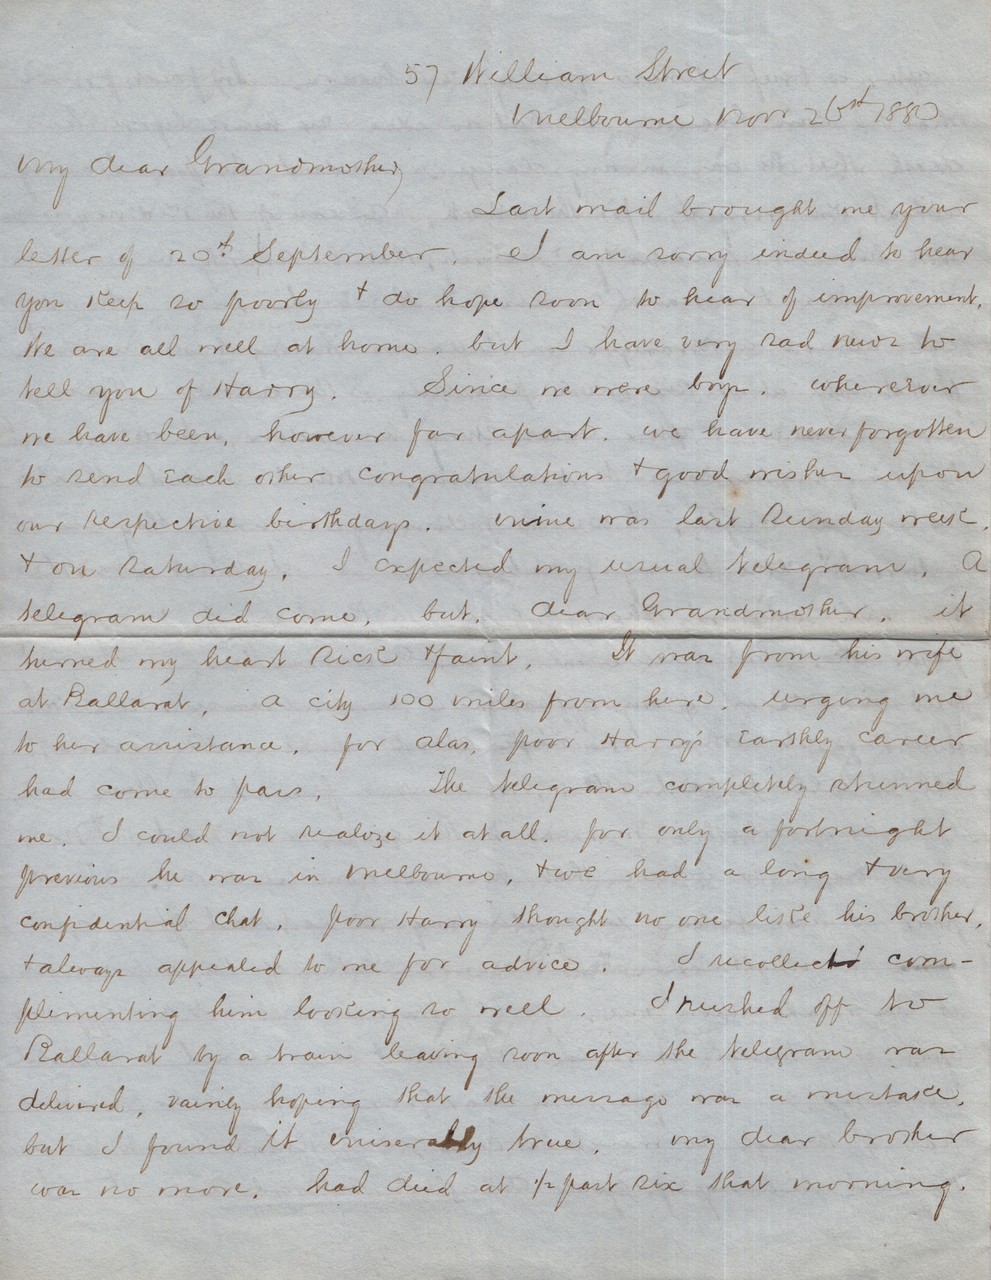 57 William Street
Melbourne Nov 26st 1880
My dear Grandmother,
Last mail brought me your
letter of 20th September. I am sorry indeed to hear
you keep so poorly + do hope soon to hear of improvement.
We are all well at home. but I have very sad news to
tell you of Harry. Since we were boys. wherever
we have been, however far apart. we have never forgotten
to send Each other congratulations + good wishes upon
our respective birthdays. Mine was last Sunday week,
+ on Saturday, I expected my usual telegram. A
telegram did come, but, dear Grandmother, it
turned my heart sick + faint. It was from his wife
at Ballarat, a city 100 miles from here. urging me
to her assistance, for alas, poor Harry's Earthly career
had come to pass. The telegram completely stunned
me. I could not realize it at all. for only a fortnight
previous he was in Melbourne, + we had a long + very
confidential chat, poor Harry thought no one like his brother,
+ always appealed to me for advice. I recollect com-
plimenting him looking so well. I rushed off to
Ballarat by a train leaving soon after the telegram was
delivered, vainly hoping that the message was a mistake,
but I found it miserably true. My dear brother
was no more. had died at ½ past six that morning.